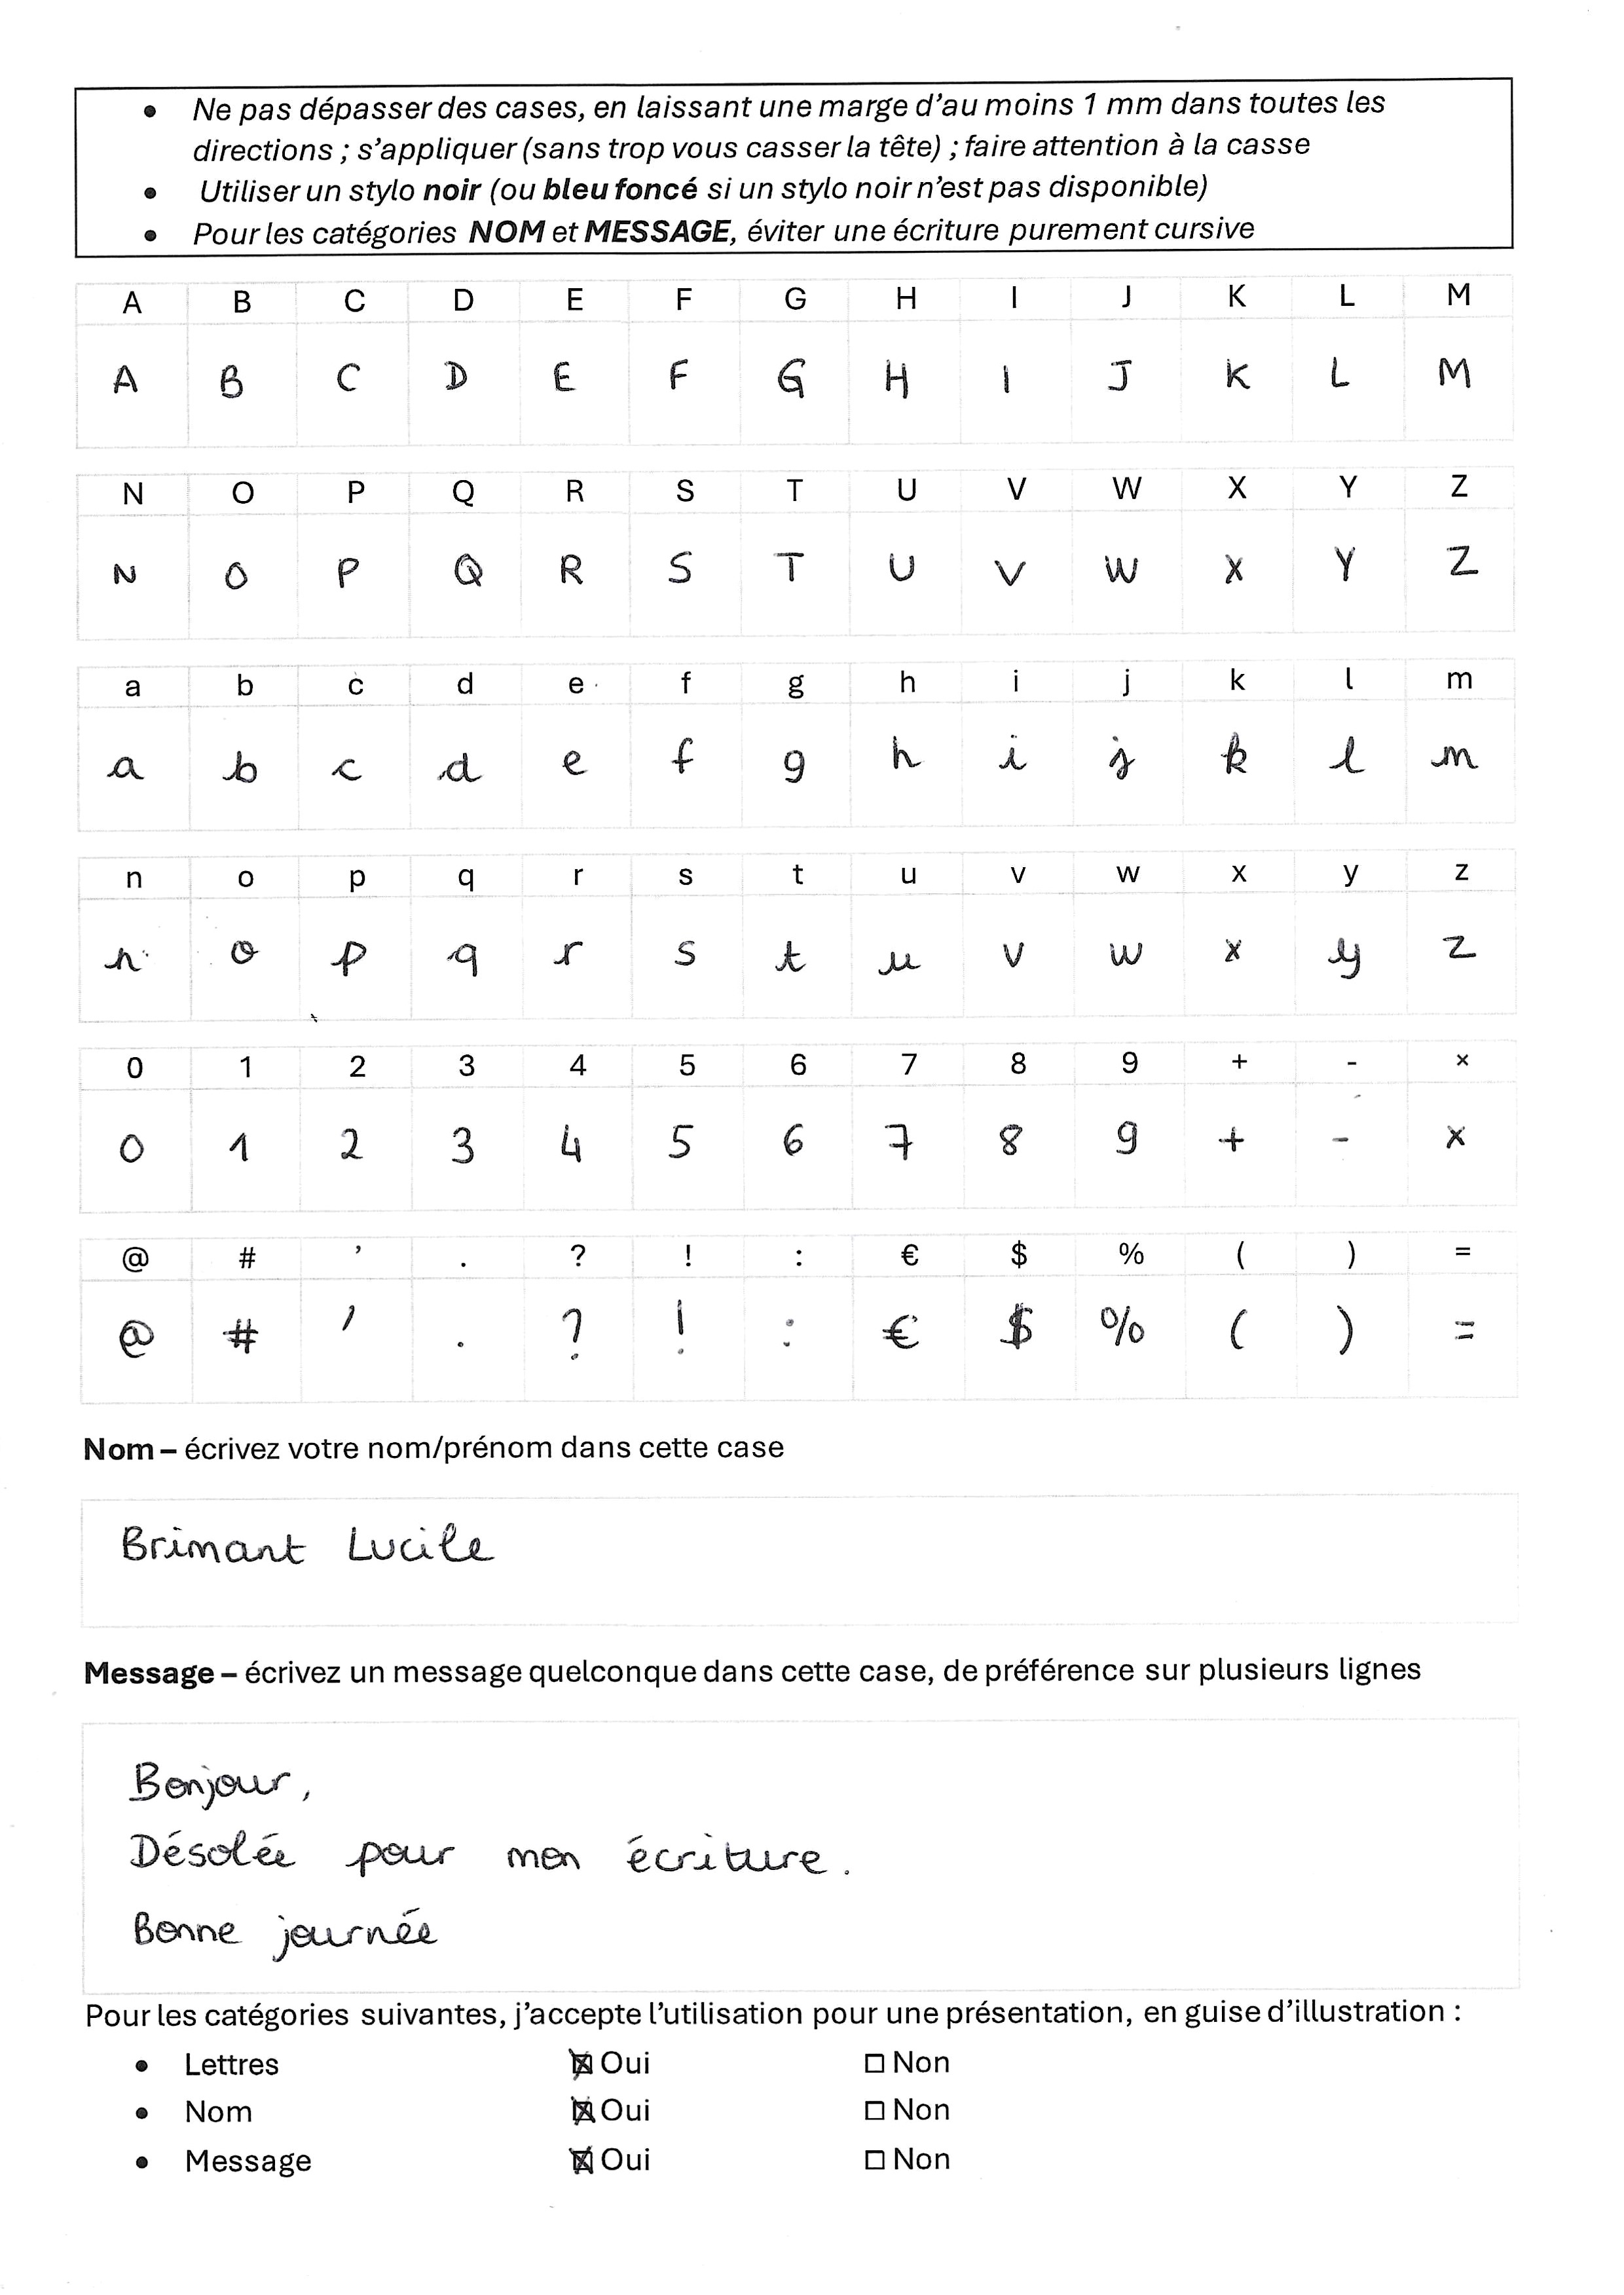 • Ne pas dépasser des cases, en laissant une marge d’au moins 1 mm dans toutes les
directions ; s’appliquer (sans trop vous casser la tête) ; faire attention à la casse
• Utiliser un stylo noir (ou bleu foncé si un stylo noir n’est pas disponible)
• Pour les catégories NOM et MESSAGE, éviter une écriture purement cursive
A B C D E F G H I J K L M
A B C D E F G H I J K L M
N O P Q R S T U V W X Y Z
N O P Q R S T U V W X Y Z
a b c d e f g h i j k l m
a b c d e f g h i j k l m
n o p q r s t u v w x y z
n o p q r s t u v w x y z
0 1 2 3 4 5 6 7 8 9 + - ×
0 1 2 3 4 5 6 7 8 9 + - ×
@ # ’ . ? ! : € $ % ( ) =
@ # ’ . ? ! : € $ % ( ) =
Nom – écrivez votre nom/prénom dans cette case
Brimant Lucile
Message – écrivez un message quelconque dans cette case, de préférence sur plusieurs lignes
Bonjour,
Désolée pour mon écriture.
Bonne journée
Pour les catégories suivantes, j’accepte l’utilisation pour une présentation, en guise d’illustration :
• Lettres ☒ Oui ☐ Non
• Nom ☒ Oui ☐ Non
• Message ☒ Oui ☐ Non